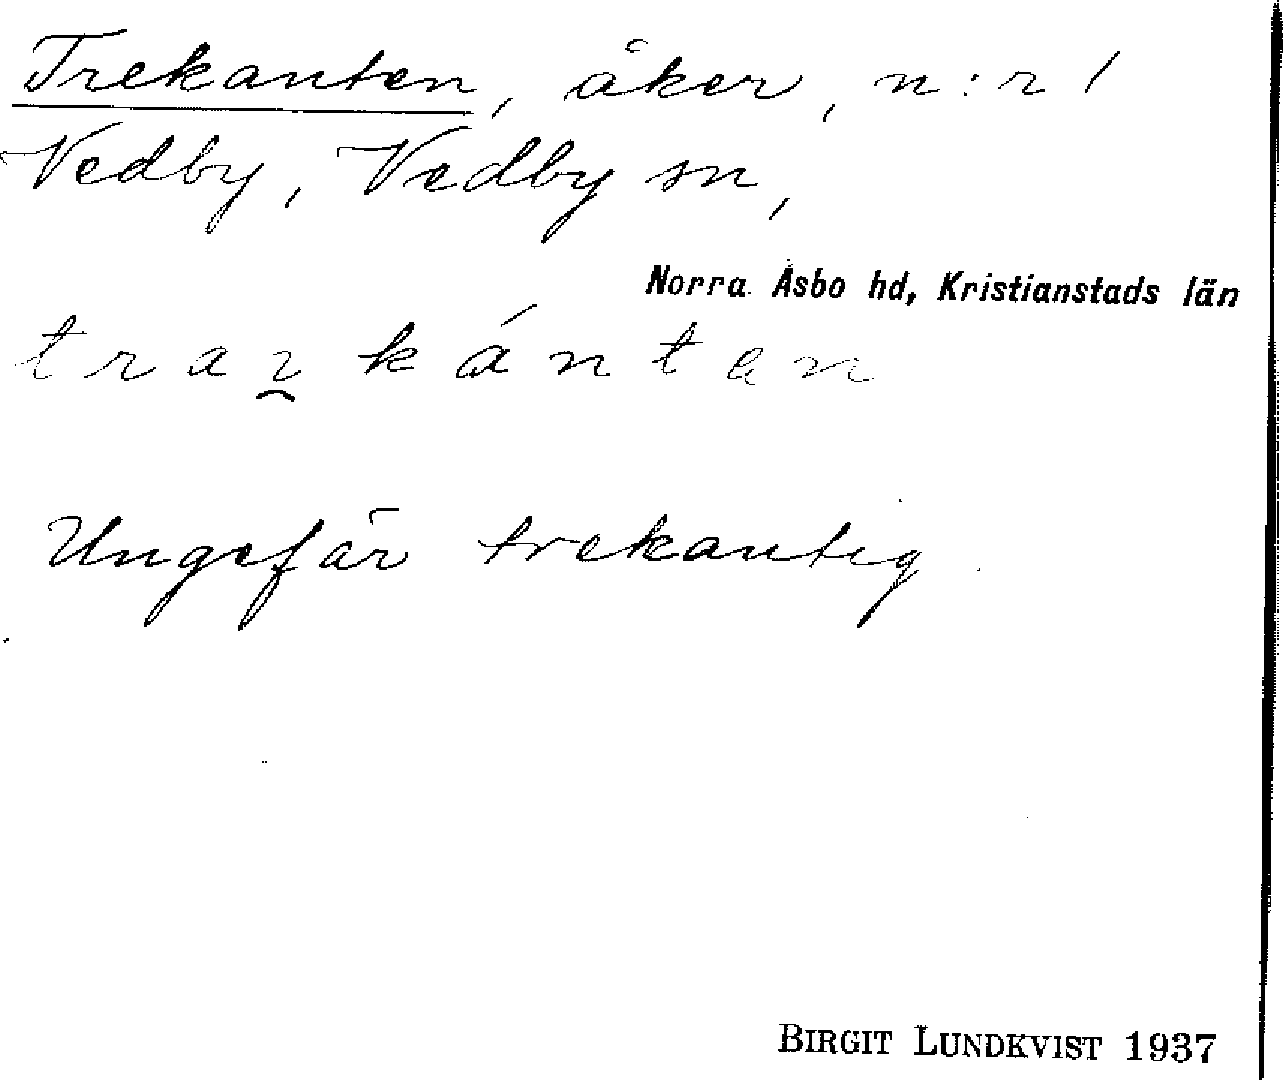 Trekanten, åker, n:r 1
Vedby, Vedby sn,
Norra Åsbo hd, Kristianstads län
Ungefär trekantig
BIRGIT LUNDKVIST 1937